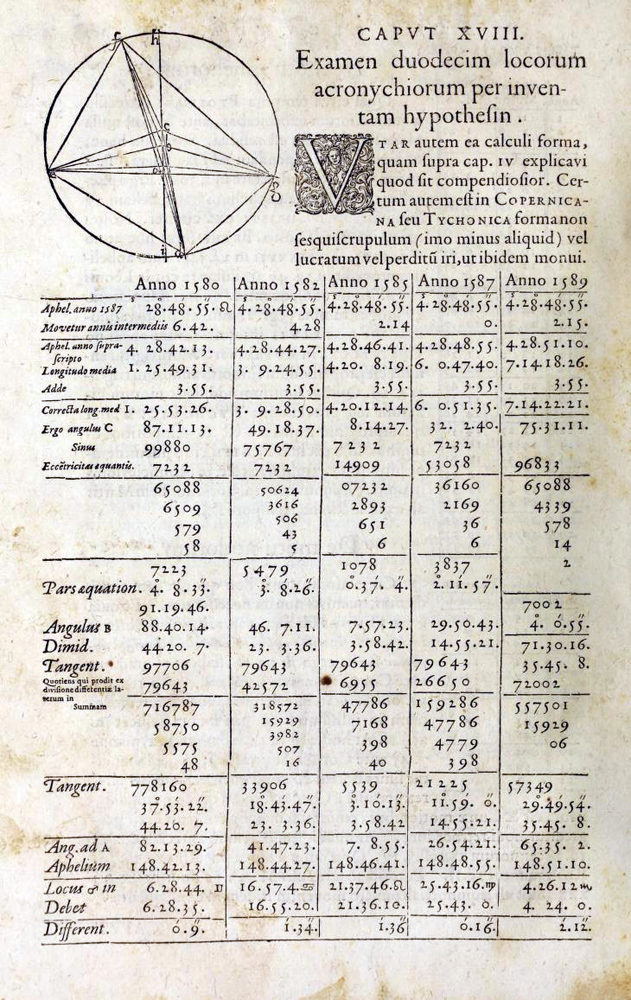 CAPVT XVIII.
Examen duodecim locorum
acronychiorum per inven-
tam hypothesin.
VTAR autem ea calculi forma,
quam supra cap. IV explicavi
quod sit compendiosior. Cer-
tum autem est in COPERNICA-
NA seu TYCHONICA forma non
sesquiscrupulum (imo minus aliquid) vel
lucratum vel perditũ iri, ut ibidem monui.
Anno 1580 Anno 1582 Anno 1585 Anno 1587 Anno 1589
Aphel. anno 1587 28.48.55.♌ 4.28.48.55. 4.28.48.55. 4.28.48.55. 4.28.48.55.
Movetur annis intermediis 6.42. 4.28 2.14 0. 2.15.
Aphel. anno supra-
scripto 4. 28.42.13. 4.28.44.27. 4.28.46.41. 4.28.48.55. 4.28.51.10.
Longitudo media 1. 25.49.31. 3. 9.24.55. 4.20. 8.19. 6. 0.47.40. 7.14.18.26.
Adde 3.55. 3.55. 3.55. 3.55. 3.55.
Correcta long. med 1. 25.53.26. 3. 9.28.50. 4.20.12.14 6. 0.51.35. 7.14.22.21.
Ergo angulus C 87.11.13. 49.18.37. 8.14.27. 32. 2.40. 75.31.11.
Sinus 99880 75767 7232 7232
Eccẽtricitas æquantis. 7232 7232 14909 53058 96833
65088 50624 07232 36160 65088
6509 3616 2893 2169 4339
579 506 651 36 578
58 43 6 6 14
5 2
7223 5479 1078 3837
Pars æquation. 4. 8.33. 3. 8.26. 0.37. 4. 2.11.57.
91.19.46. 7002
Angulus B 88.40.14. 46. 7.11. 7.57.23. 29.50.43. 4. 0.55.
Dimid. 44.20. 7. 23. 3.36. 3.58.42. 14.55.21. 71.30.16.
Tangent. 97706 79643 79643 79643 35.45. 8.
Quotiens qui prodit ex
divisione differentiæ la-
terum in
Summam
79643 42572 6955 26650 72002
716787 318572 47786 159286 557501
58750 15929 7168 47786 15929
5575 3982 398 4779 06
48 507 40 398
16
Tangent. 778160 33906 5539 21225 57349
37.53.22. 18.43.47. 3.10.13. 11.59. 0. 29.49.54.
44.20. 7. 23. 3.36. 3.58.42 14.55.21. 35.45. 8.
Ang. ad A 82.13.29. 41.47.23. 7. 8.55. 26.54.21. 65.35. 2.
Aphelium 148.42.13. 148.44.27. 148.46.41. 148.48.55. 148.51.10.
Locus ♂ in 6.28.44. ♊ 16.57.4.♋ 21.37.46.♌ 25.43.16.♍ 4.26.12♏
Debet 6.28.35. 16.55.20. 21.36.10. 25.43. 0. 4. 24. 0.
Different. 0.9. 1.34. 1.36 0.16. 2.12.